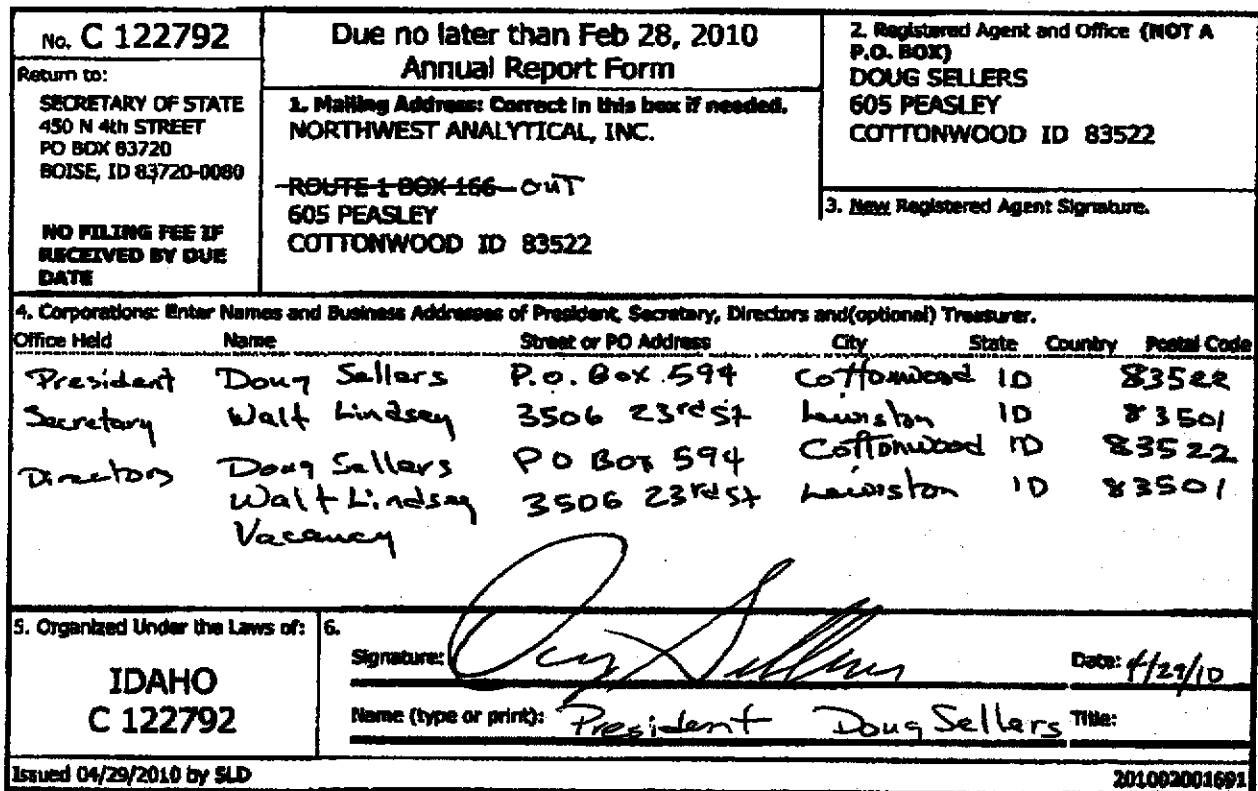 No. C 122792
Return to:
SECRETARY OF STATE
450 N 4th STREET
PO BOX 83720
BOISE, ID 83720-0080
NO FILING FEE IF
RECEIVED BY DUE
DATE
Due no later than Feb 28, 2010
Annual Report Form
1. Mailing Address: Correct in this box if needed.
NORTHWEST ANALYTICAL, INC.
ROUTE 1 BOX 166 OUT
605 PEASLEY
COTTONWOOD ID 83522
2. Registered Agent and Office (NOT A
P.O. BOX)
DOUG SELLERS
605 PEASLEY
COTTONWOOD ID 83522
3. New Registered Agent Signature.
4. Corporations: Enter Names and Business Addresses of President, Secretary, Directors and(optional) Treasurer.
Office Held Name Street or PO Address City State Country Postal Code
President Doug Sellers P.O. Box 594 Cottonwood ID 83522
Secretary Walt Lindsey 3506 23rd St Lewiston ID 83501
Directors Doug Sellers PO Box 594 Cottonwood ID 83522
Walt Lindsey 3506 23rd St Lewiston ID 83501
Vacancy
5. Organized Under the Laws of:
IDAHO
C 122792
6.
Signature: Doug Sellers Date: 4/29/10
Name (type or print): President Doug Sellers Title:
Issued 04/29/2010 by SLD
201002001691